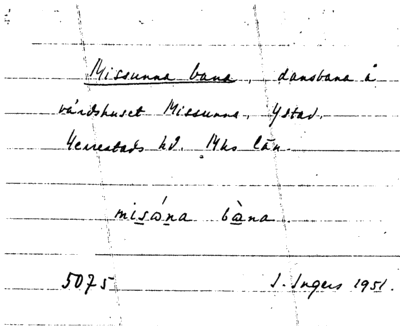 Missunna bana, dansbana å
värdshuset Missunna, Ystad.
Herrestads hd. Mhs län.
misώna bàna
5075 I. Ingers 1951.